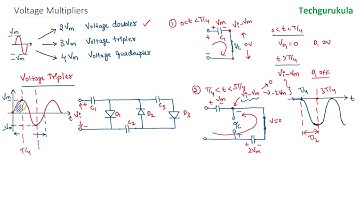 Voltage Multipliers
Techgurukula
Vm
-Vm
2Vm Voltage doubler ✓
3Vm Voltage tripler
4Vm Voltage quadrupler
Voltage Tripler
Vm
-Vm
T/4
Vi
C1
C2
C3
D1
D2
D3
① 0<t<T/4
Vm
Vi-Vm
C1
0<t<T/4
Vγ1=0 D1 ON
t>T/4
Vi-Vm
D1 OFF
② T/4<t<3T/4
Vm
Vi-Vm
-2Vm
V=0
2Vm
T/4
3T/4
T/2